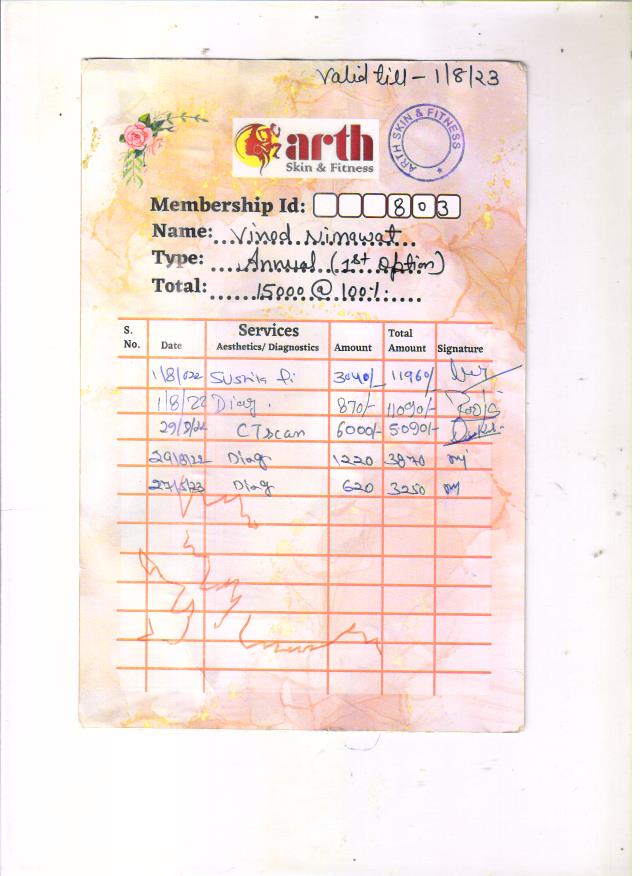 Valid till - 1/8/23
ARTH SKIN & FITNESS
arth
Skin & Fitness
Membership Id: 803
Name: Vinod Nimawat
Type: Annual (1st option)
Total: 15000 @ 100%
S. No. Date Services Aesthetics/ Diagnostics Amount Total Amount Signature
1/8/022 3040/- 11960/-
1/8/22 Diag. 870/- 11090/-
29/8/22 CT scan 6000/- 5090/-
29/8/22 Diag 1220 3870
27/5/23 Diag 620 3250